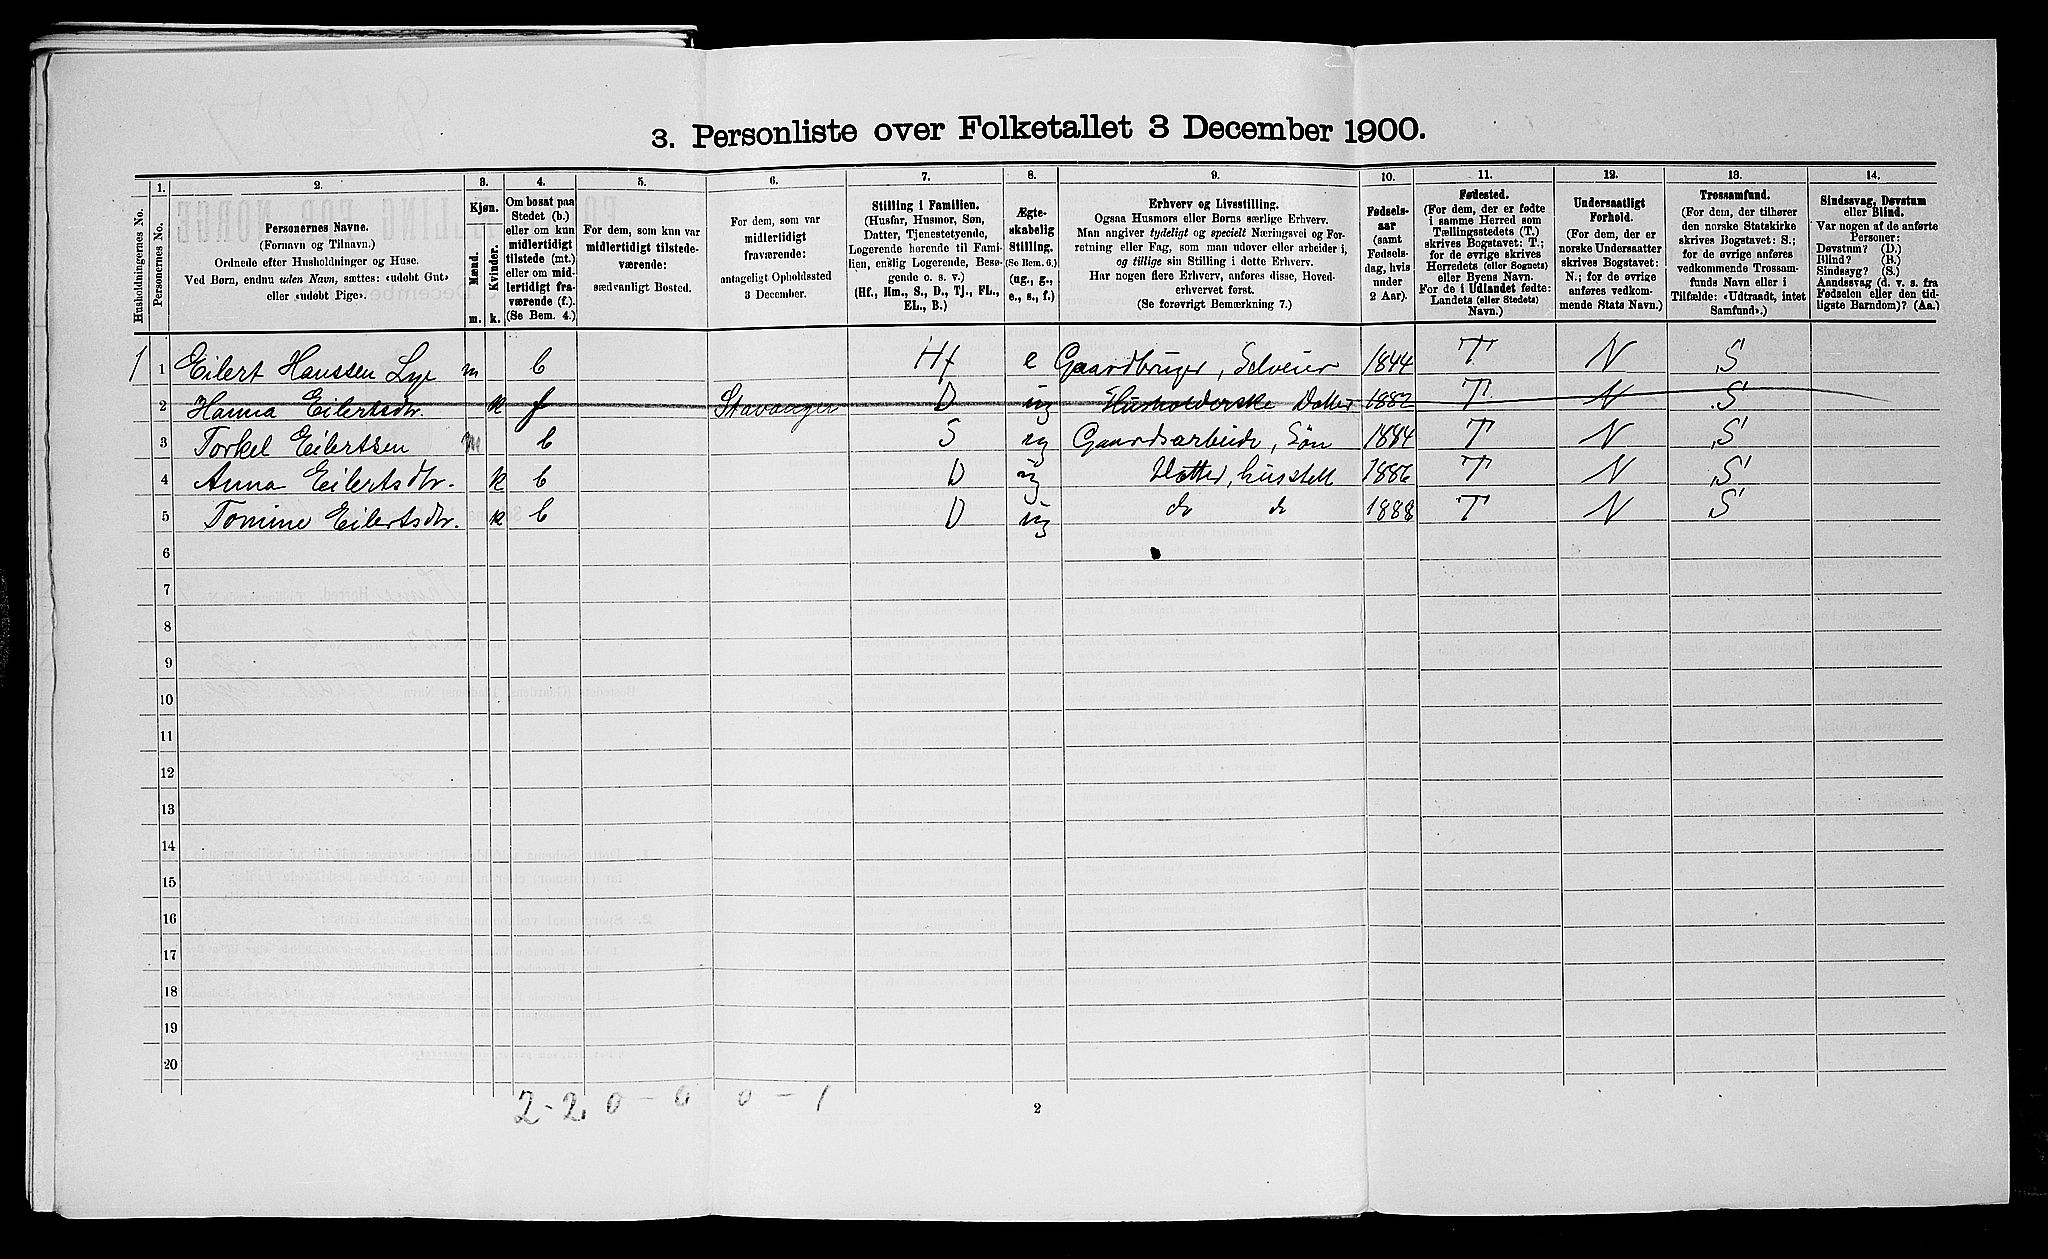 3. Personliste over Folketallet 3 December 1900.
1. 2. 3. 4. 5. 6. 7. 8. 9. 10. 11. 12. 13. 14.
Husholdningernes No.
Personernes No.
Personernes Navne.
(Fornavn og Tilnavn.)
Ordnede efter Husholdninger og Huse.
Ved Børn, endnu uden Navn, sættes: «udøbt Gut»
eller «udøbt Pige».
Kjøn.
Mænd.
Kvinder.
m. k.
Om bosat paa
Stedet (b.)
eller om kun
midlertidigt
tilstede (mt.)
eller om mid-
lertidigt fra-
værende (f.).
(Se Bem. 4.)
For dem, som kun var
midlertidigt tilstede-
værende:
sædvanligt Bosted.
For dem, som var
midlertidigt
fraværende:
antageligt Opholdssted
3 December.
Stilling i Familien.
(Husfar, Husmor, Søn,
Datter, Tjenestetyende,
Logerende hørende til Fami-
lien, enslig Logerende, Besø-
gende o. s. v.)
(Hf., Hm., S., D., Tj., FL.,
EL., B.)
Ægte-
skabelig
Stilling.
(Se Bem. 6.)
(ug., g.,
e., s., f.)
Erhverv og Livsstilling.
Ogsaa Husmors eller Børns særlige Erhverv.
Man angiver tydeligt og specielt Næringsvei og For-
retning eller Fag, som man udover eller arbeider i,
og tillige sin Stilling i dette Erhverv.
Har nogen flere Erhverv, anføres disse, Hoved-
erhvervet først.
(Se forøvrigt Bemærkning 7.)
Fødsels-
aar
(samt
Fødsels-
dag, hvis
under
2 Aar).
Fødested.
(For dem, der er fødte
i samme Herred som
Tællingsstedets (T.)
skrives Bogstavet: T.;
for de øvrige skrives
Herredets (eller Sognets)
eller Byens Navn.
For de i Udlandet fødte:
Landets (eller Stedets)
Navn.)
Undersaatligt
Forhold.
(For dem, der er
norske Undersaatter
skrives Bogstavet:
N.; for de øvrige
anføres vedkom-
mende Stats Navn.)
Trossamfund.
(For dem, der tilhører
den norske Statskirke
skrives Bogstavet: S.;
for de øvrige anføres
vedkommende Trossam-
funds Navn eller i
Tilfælde: «Udtraadt, intet
Samfund».)
Sindssvag, Døvstum
eller Blind.
Var nogen af de anførte
Personer:
Døvstum? (D.)
Blind? (B.)
Sindssyg? (S.)
Aandssvag (d. v. s. fra
Fødselen eller den tid-
ligste Barndom)? (Aa.)
1 1 Eilert Hanssen Lye m b Hf e Gaardbruger, Selveier 1844 T N S
2 Hanna Eilertsdtr. k f Stavanger D ug Husholderske Datter 1882 T N S
3 Torkel Eilertsen m b S ug Gaardsarbeide, Søn 1884 T N S
4 Anna Eilertsdtr. k b D ug Datter, husstell 1886 T N S
5 Tomine Eilertsdtr. k b D ug do do 1888 T N S
6
7
8
9
10
11
12
13
14
15
16
17
18
19
20
2 - 2 0 - 0 0 - 1
2